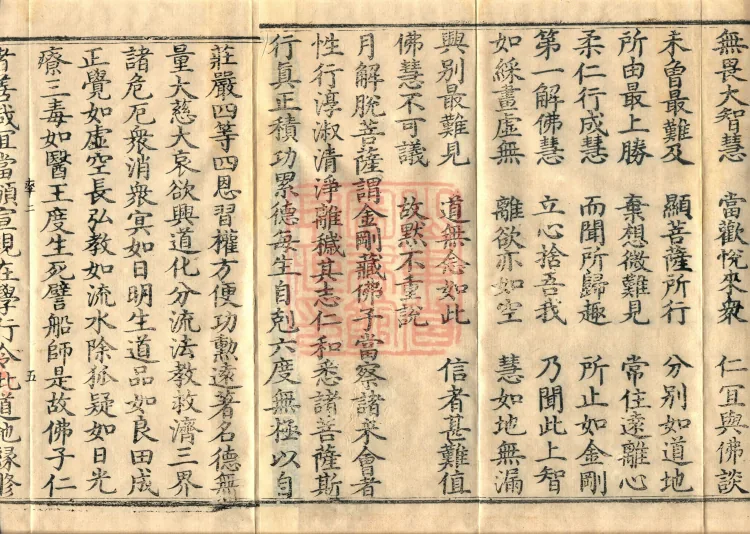 無畏大智慧　當歡悅來衆　仁宜與佛談
未曽最難及　顯菩薩所行　分別如道地
所由最上勝　棄想微難見　常住遠離心
柔仁行成慧　而聞所歸趣　所止如金剛
第一解佛慧　立心捨吾我　乃聞此上智
如綵畫虛無　離欲亦如空　慧如地無漏
興別最難見　道無念如此　信者甚難值
佛慧不可議　故默不重說
月解脫菩薩謂金剛藏佛子當察諸來會者
性行淳淑清淨離穢其志仁和悉諸菩薩斯
行真正積功累德每生自剋六度無極以自
莊嚴四等四恩習權方便功勲遠著名德無
量大慈大哀欲興道化分流法教救濟三界
諸危厄衆消衆冥如日明生道品如良田成
正覺如虛空長弘教如流水除狐疑如日光
療三毒如醫王度生死譬船師是故佛子仁
者善哉宜當頒宣現在學行令此道地縁修
五